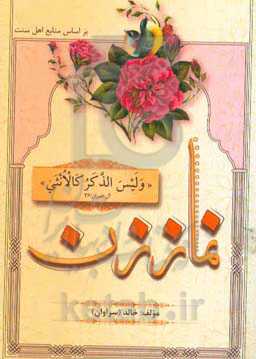 بر اساس منابع اهل سنت
« وَلَيْسَ الذَّكَرُ كَالْأُنْثَي »
آل عمران/۳۶
نماز زن
مؤلف: خالد (سراوان)
ketab.ir